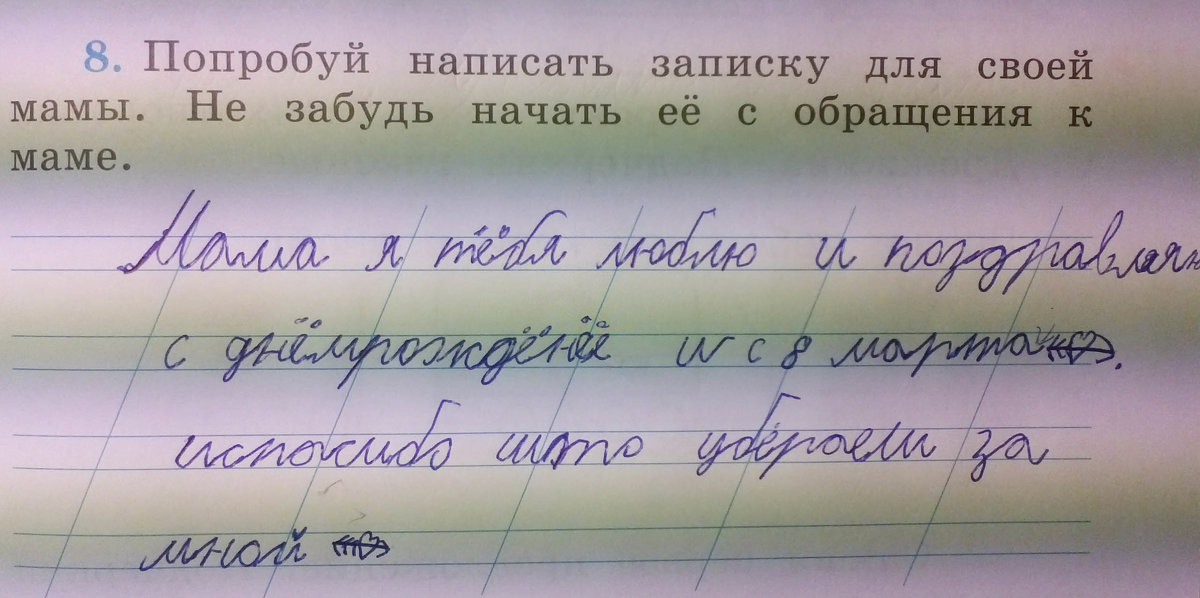 8. Попробуй написать записку для своей
мамы. Не забудь начать её с обращения к
маме.
Мама я тёбя люблю и поздравляяю
с днёмрождёнёё и с 8 марта.
испасибо што уберaеш за
мной